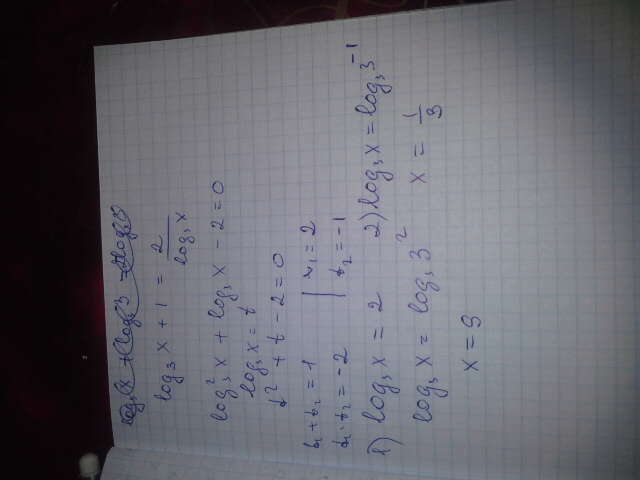 log₃ x + 1 = 2/log₃ x
log₃² x + log₃ x - 2 = 0
log₃ x = t
t² + t - 2 = 0
t₁ + t₂ = 1 | t₁ = 2
t₁ · t₂ = -2 | t₂ = -1
1) log₃ x = 2 2) log₃ x = log₃ 3⁻¹
log₃ x = log₃ 3² x = 1/3
x = 9